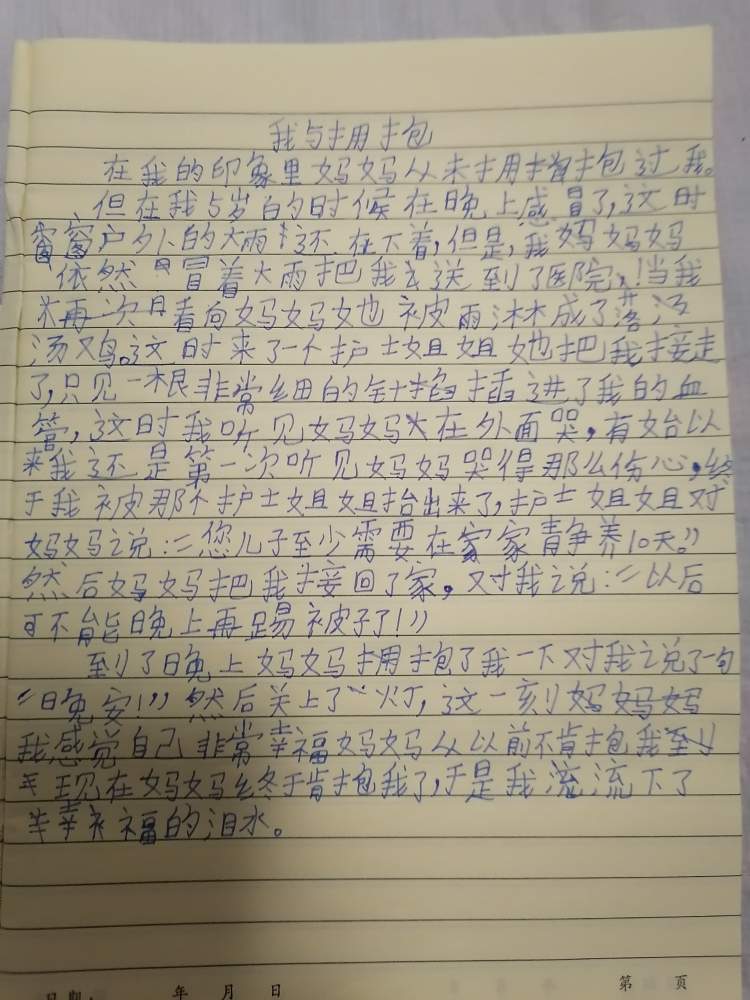 我与拥抱
在我的印象里妈妈从未拥抱过我。
但在我5岁的时候在晚上感冒了,这时
窗户外的大雨还在下着,但是,我妈妈妈
依然冒着大雨把我送到了医院,!当我
再一次看向妈妈她也被雨淋成了落汤
汤鸡。这时来了一个护士姐姐她把我接走
了,只见一根非常细的针插进了我的血
管,这时我听见妈妈在外面哭,有始以
来我还是第一次听见妈妈哭得那么伤心,终
于我被那个护士姐姐抬出来了,护士姐姐对
妈妈说:“您儿子至少需要在家家静养10天。”
然后妈妈把我接回了家,对我说:“以后
可不能晚上再踢被子了!”
到了晚上妈妈拥抱了我一下对我说了一句
“晚安!”然后关上了灯,这一刻妈妈妈
我感觉自己非常幸福妈妈从以前不肯抱我到
现在妈妈终于肯抱我了,于是我流流下了
幸福的泪水。
日期: 年 月 日
第 页